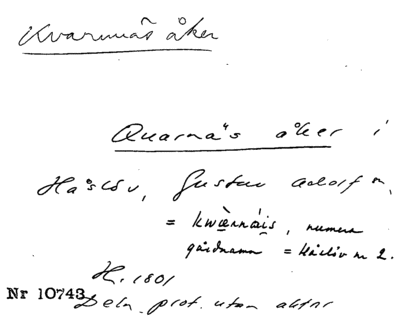 Kvarnnäs åker
Quarnä's åker i
Håslöv, Gustav Adolf sn,
= kwæ̀nnái̯s, numera
gårdnamn = Håslöv nr 2.
H. 1801
Nr 10743 Deln. prot. utan aktnr